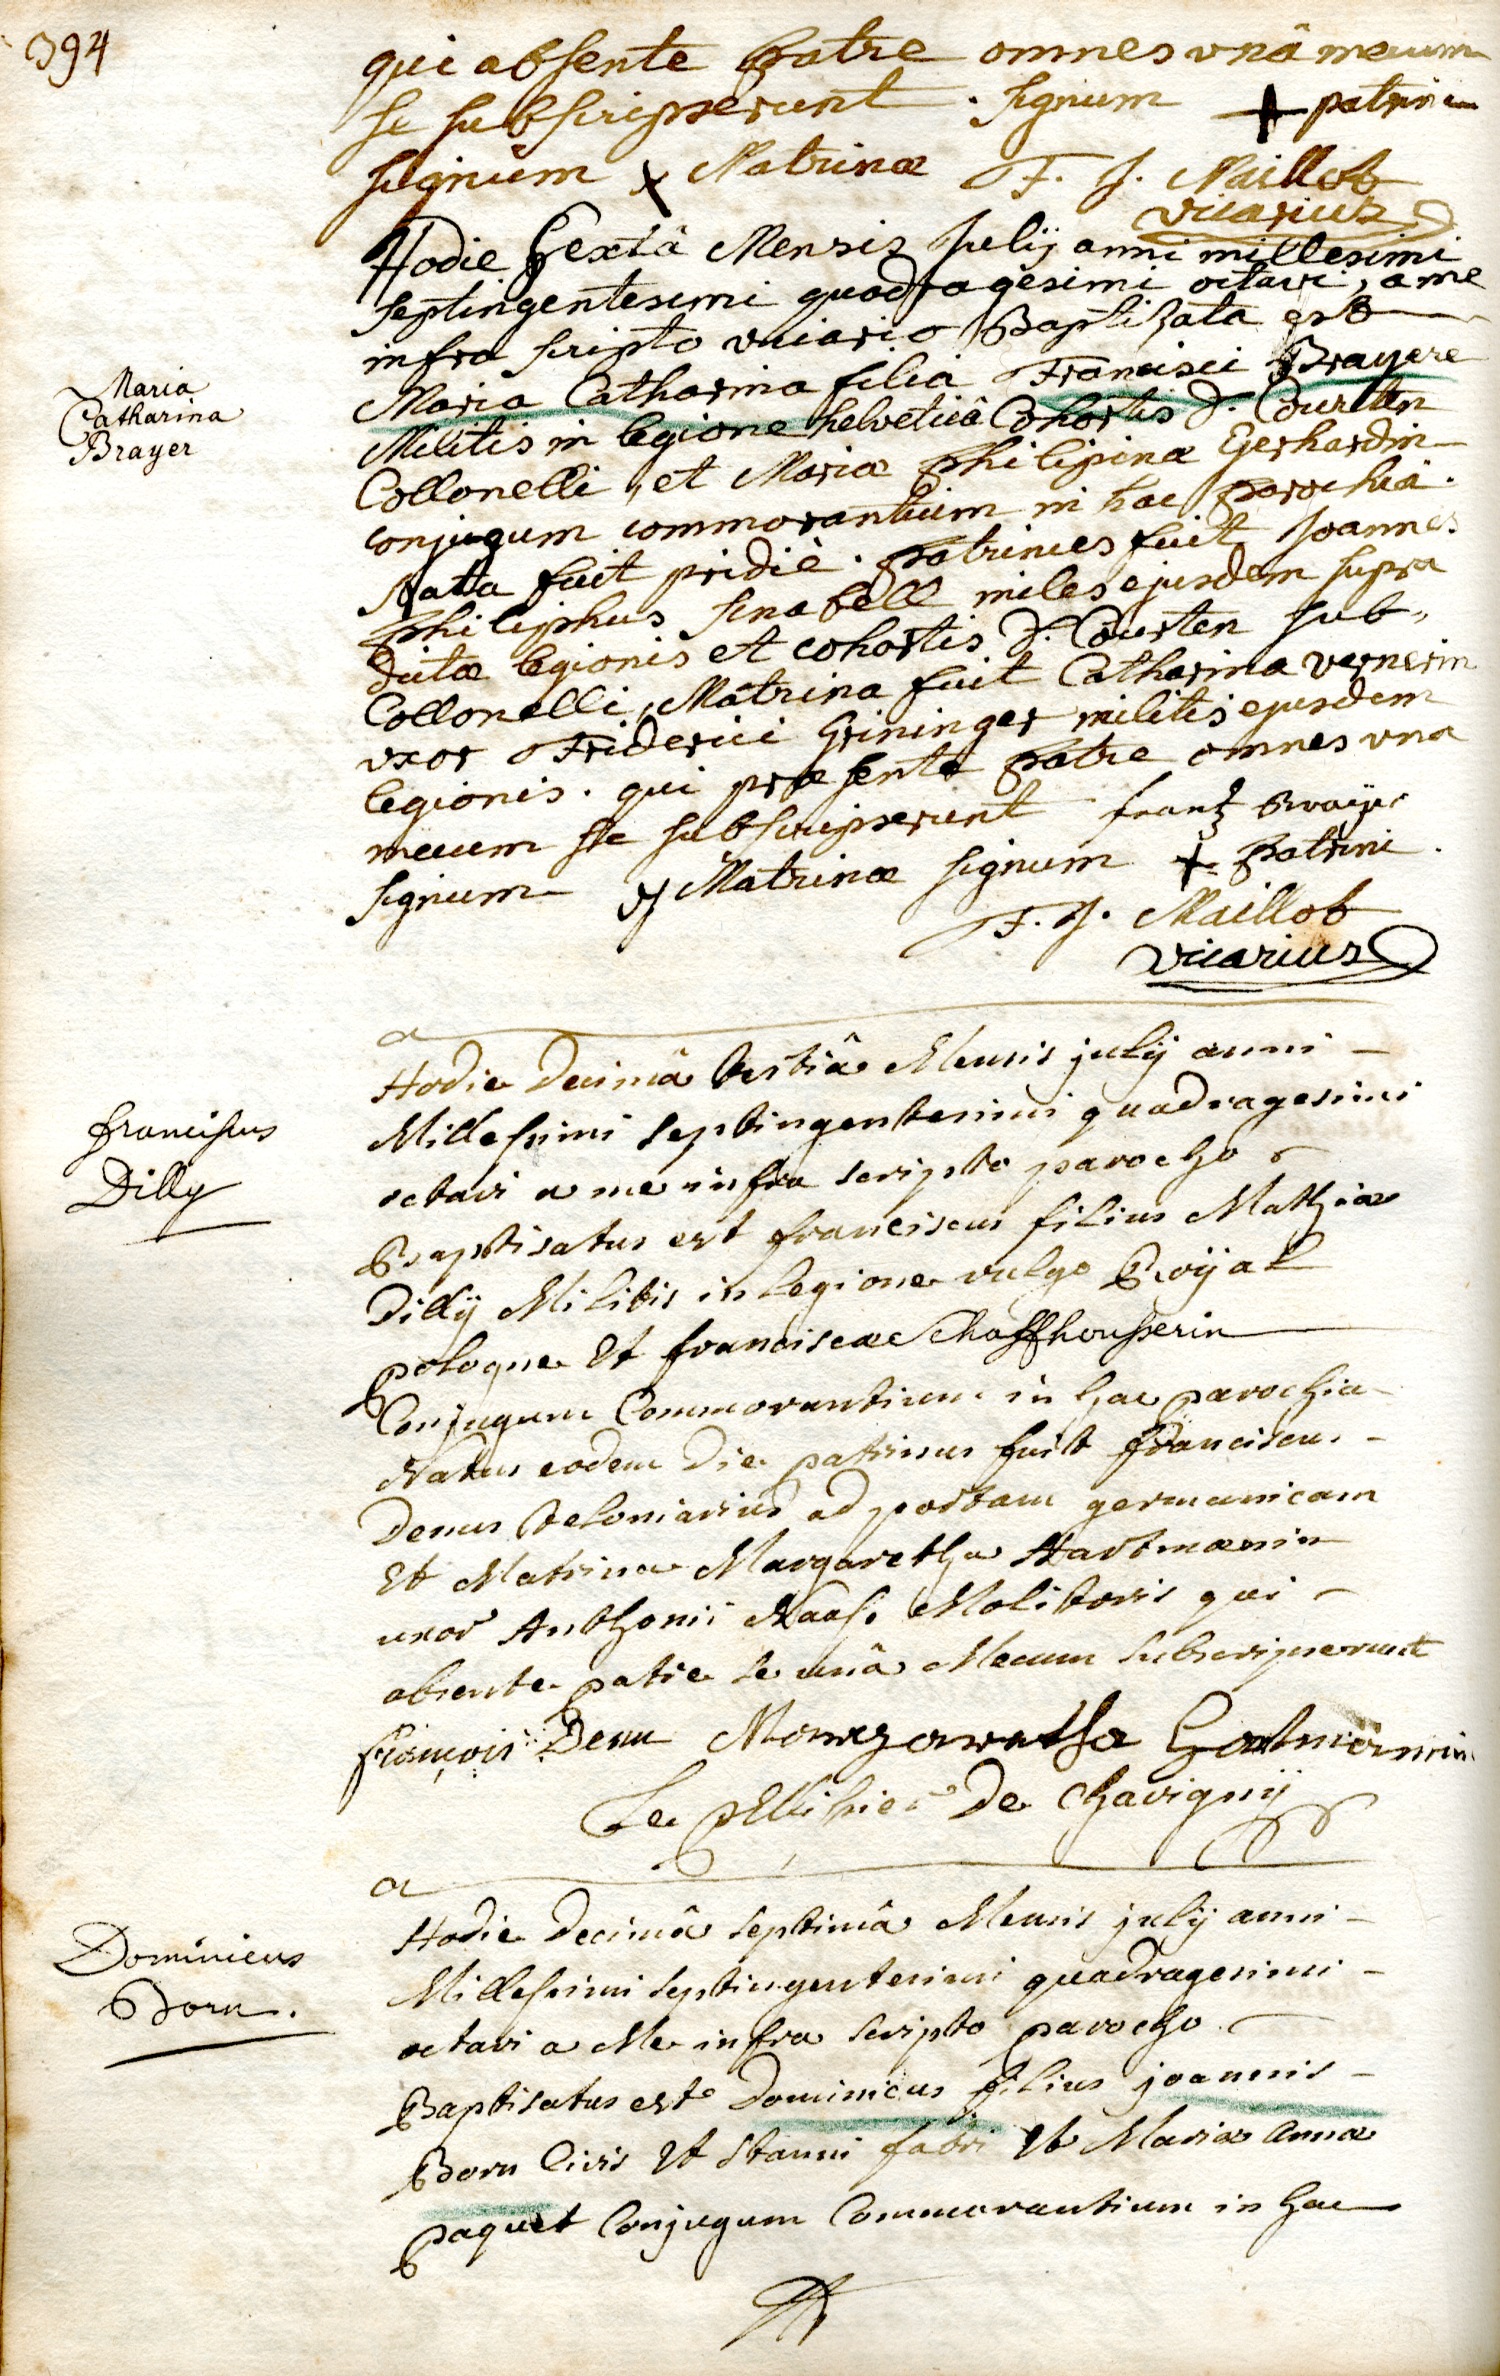 394
qui absente patre omnes unâ mecum
se subscripserunt. signum + patrini
signum x Matrinæ F. J. Maillot
vicarius
Hodie sextâ Mensis julij anni millesimi
septingentesimi quadragesimi octavi, a me
infra scripto vicario Baptizata est
Maria Catharina filia Francisci Brayere
Maria
Catharina
Brayer
Militis in legione helveticâ Cohortis D. Courtten
Collonelli, et Mariæ philipinæ Gerhardin
conjugum commorantium in hac parochiâ.
Nata fuit pridiè. patrinus fuit Joannes
philiphus sinabell miles ejusdem supra
dictæ legionis et cohortis D. Courten sub,,
Collonelli, Matrina fuit Catharina vernerin
vxor Friderici Grininger militis ejusdem
legionis. qui præsente patre omnes una
mecum se subscripserunt frantz Brayer
signum x Matrinæ signum + patrini.
F. J. Maillot
vicarius
Hodie decimâ tertiâ Mensis julij anni -
Millesimi septingentesimi quadragesimi
octavi a me infra scripto parocho
franciscus
Dilly
Baptisatus est franciscus filius Mathiæ
Dillÿ Militis in legione vulgo Roÿal
pologne Et franciscæ Schaffhousserin
Conjugum Commorantium in hac parochia
Natus eodem die patrinus fuit franciscus -
Denus teloniarius ad portam germanicam
Et Matrina Margaretha Hartmanin
uxor Anthonii Naass Molitoris qui
absente patre se unâ Mecum subscripserunt
françois Denu Margaretha Hartmanin
Le pelletier De Chavignÿ
Hodie decimâ septimâ Mensis julij anni -
Millesimi septingentesimi quadragesimi -
octavi a Me infra scripto parocho
Dominicus
Born.
Baptisatus est Dominicus filius joannis -
Born Civis Et stanni fabri Et Mariæ Annæ
paquet Conjugum Commorantium in hac